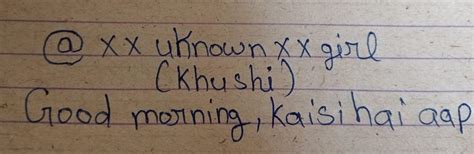 @ xx uknown xx girl
(Khushi)
Good morning, Kaisi hai aap